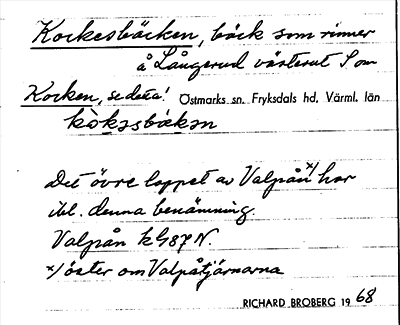 Kockesbäcken, bäck som rinner
å Långerud västerut S om
Kocken, se detta! Östmarks sn. Fryksdals hd. Värml. län
kòkəsbäkən
Det övre loppet av Valpån x/ har
ibl. denna benämning.
Valpån k G87 N.
x/ öster om Valpåtjärnarna
RICHARD BROBERG 19 68